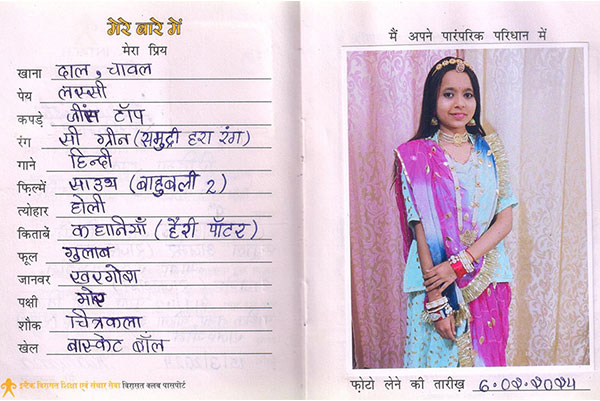 मेरे बारे में
मेरा प्रिय
खाना दाल, चावल
पेय लस्सी
कपड़े जींस टॉप
रंग सी ग्रीन (समुद्री हरा रंग)
गाने हिन्दी
फ़िल्में साउथ (बाहुबली 2)
त्योहार होली
किताबें कहानियाँ (हैरी पॉटर)
फूल गुलाब
जानवर खरगोश
पक्षी मोर
शौक चित्रकला
खेल बास्केट बॉल
इन्टैक विरासत शिक्षा एवं संचार सेवा विरासत क्लब पासपोर्ट
मैं अपने पारंपरिक परिधान में
फ़ोटो लेने की तारीख़ 6.02.2024